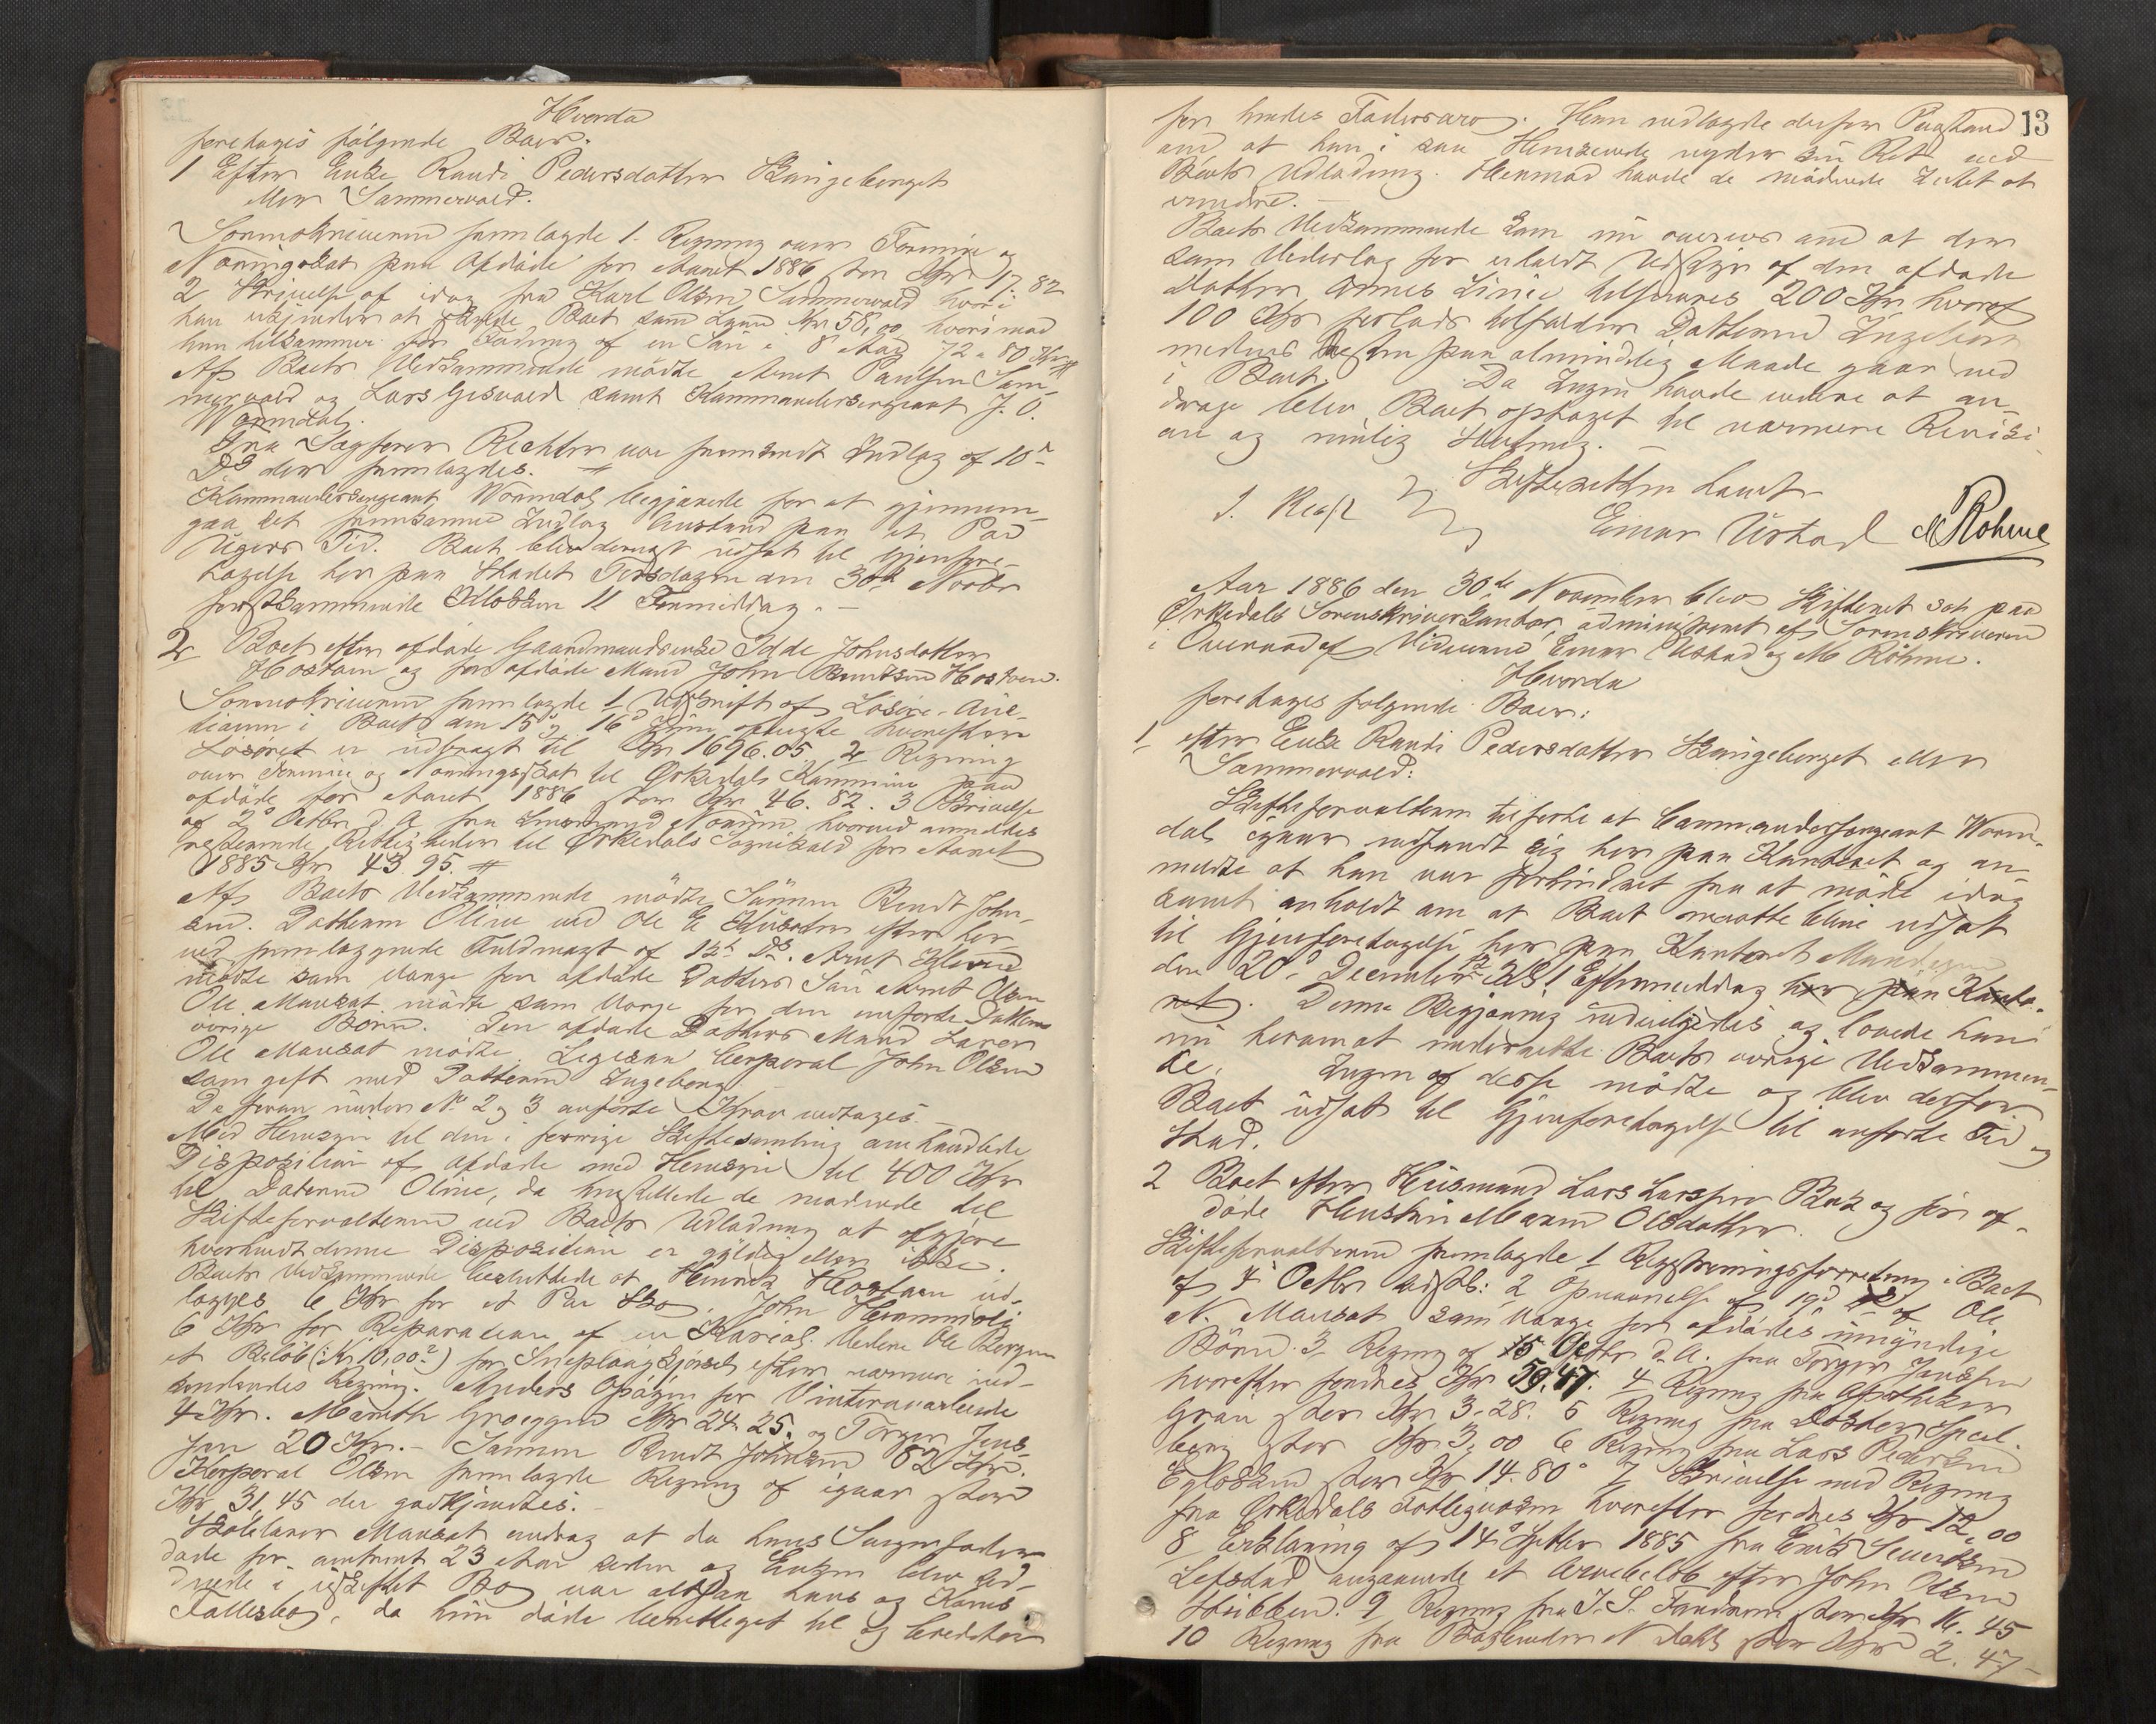 Hvorda
foretoges følgende Boer:
1 Efter Enke Randi Pedersdatter Skaugeberget
eller Sammervold.
Sorenskriveren fremlagde 1. Regning over Formue og
Næringsskat paa Afdøde for Aaret 1886 stor Kr 17.82
2 Skrivelse af idag fra Karl Olsen Sammervold hvori
han erkjender at skylde Boet som Laan Kr 58,00 hvorimod
ham tilkommer for Fødning af en Sau i 8 Aar 72 a 80 Kr #
Af Boets Vedkommende mødte Arnt Paulsen Sam-
mervold og Lars Gisvold samt Kommandersergeant J. O.
Wormdal.
Fra Sagfører Richter var fremsendt Indlæg af 10de
Ds der fremlagdes. #
Kommandersergeant Wormdal begjærede for at gjennem-
gaa det fremkomne Indlæg Anstand paa et Par
Ugers Tid. Boet blev dernæst udsat til Gjenfore-
tagelse her paa Stedet Tirsdagen den 30te Novbr
førstkommende Klokken 11 Formiddag. —
2 Boet efter afdøde Gaardmandsenke Idde Johnsdatter
Hostoen og før afdøde Mand John Bendtsen Hostoen.
Sorenskriveren fremlagde 1 Udskrift af Løsøre-Auc-
tionen i Boet den 15de og 16de Juni sidste hvorefter
Løsøret er udbragt til Kr 1696.05. 2 Regning
over Formue og Næringsskat til Ørkedals Kommune paa
afdøde for Aaret 1886 stor Kr 46.82. 3 Skrivelse
af 2den Octbr d. A. fra Lensmand Norum hvorved anmeldes
resterende Rettigheder til Ørkedals Sognekald for Aaret
1885 Kr 43 95. #
Af Boets Vedkommende mødte Sønnen Bendt John-
sen. Datteren Oline ved Ole E Kusater efter her-
ved fremlæggende Fuldmagt af 12te Ds. Arnt Kleven
mødte som Værge for afdøde Datters Søn Arnt Olsen
Ole Mausat mødte som Værge for den anførte Datters
øvrige Børn. Den afdøde Datters Mand Lærer
Ole Mausat mødte. Ligesaa Corporal John Olsen
som gift med Datteren Ingeborg.
De foran under No 2 og 3 anførte Krav vedtoges.
Med Hensyn til den i forrige Skiftesamling omhandlede
Disposition af Afdøde med Hensyn til 400 Kr
til Datteren Oline, da henstillede de mødende til
Skifteforvalteren ved Boets Udlodning at afgjøre
hvorvidt denne Disposition er gyldig eller ikke.
Boets Vedkommende besluttede at Henrik Hostoen ud-
lægges 6 Kr for et Par Sko, John Hammerli
6 Kr for Reparation af en Kariol. Videre Ole Bergum
et Beløb (: Kr 10,00?) for Sneplougkjørsel efter nærmere ind-
sendendes Regning. Anders Opøien for Vinterarbeide
4 Kr. Mareth Groeggen Kr 24.25. og Torger Jens-
sen 20 Kr. — Sønnen Bendt Johnsen 82 Kr.
Korporal Olsen fremlagde Regning af igaar stor
Kr 31,45 der godkjendtes.
Skolelærer Mausat androg at da hans Svigerfader
døde for omtrent 23 Aar siden og Enken blev sid-
dende i uskiftet Bo var altsaa hans og Kones
Fællesbo, da hun døde berettiget til og Creditor
13
for hendes Fadersarv. Han nedlagde derfor Paastand
om at han i saa Henseende nyder sin Ret ved
Boets Udlodning. Herimod havde de mødende Intet at
erindre. —
Boets Vedkommende kom nu overens om at der
som Vederlag for erholdt Udstyr af den afdøde
Datter Annes Linie tilsvares 200 Kr hvoraf
100 Kr forlods tilfalder Datteren Ingeborg
medens Resten paa almindelig Maade gaar ind
i Boet. Da Ingen havde videre at an-
drage blev Boet optaget til nærmere Revisi-
on og mulig Slutning. —
Skifteretten hævet —
J. Rasch Einar Ustad M Rohme
Aar 1886 den 30te November blev Skifteret sat paa
Ørkedals Sorenskriverkontor, administreret af Sorenskriveren
i Overvær af Vidnerne Einar Ustad og M Röhme.
Hvorda
foretoges følgende Boer:
1 efter Enke Randi Pedersdatter Skaugeberget eller
Sammervold:
Skifteforvalteren tilførte at Commandersergeant Worm-
dal igaar indfandt sig her paa Kontoret og an-
meldte at han var forhindret fra at møde idag
samt anholdt om at Boet maatte blive udsat
til Gjenforetagelse her paa Kontoret Mandagen
den 20de December Kl 1 Eftermiddag her paa Konto-
ret. Denne Begjæring indvilgedes og lovede han
nu herom at underrette Boets øvrige Vedkommen-
de. Ingen af disse mødte og blev derfor
Boet udsat til Gjenforetagelse til anførte Tid og
Sted.
2 Boet efter Husmand Lars Larssen Bak og før af-
døde Hustru Maren Olsdatter.
Skifteforvalteren fremlagde 1 Registreringsforretning i Boet
af 4 Octbr sidstl: 2 Opnævnelse af 19de af Ole
N. Mausat som Værge for afdødes umyndige
Børn. 3 Regning af 15 Octbr d. A. fra Torger Jenssen
hvorefter fordres Kr 59,47. 4 Regning fra Apotheker
Grøn stor Kr 3.28. 5 Regning fra Doktor Speil-
berg stor Kr 3,00 6 Regning fra Lars Pedersen
Egloskin stor Kr 14.80. 7 Skrivelse med Regning
fra Ørkedals Fattigvæsen hvorefter fordres Kr 12,00
8 Erklæring af 14de Septbr 1885 fra Erik Sivertsen
Lefstad angaaende et Arvebeløb efter John Olsen
Stubben. 9 Regning fra J. S. Fandrem stor Kr 16.45
10 Regning fra Bogbinder N Dahl stor Kr 2.47 —